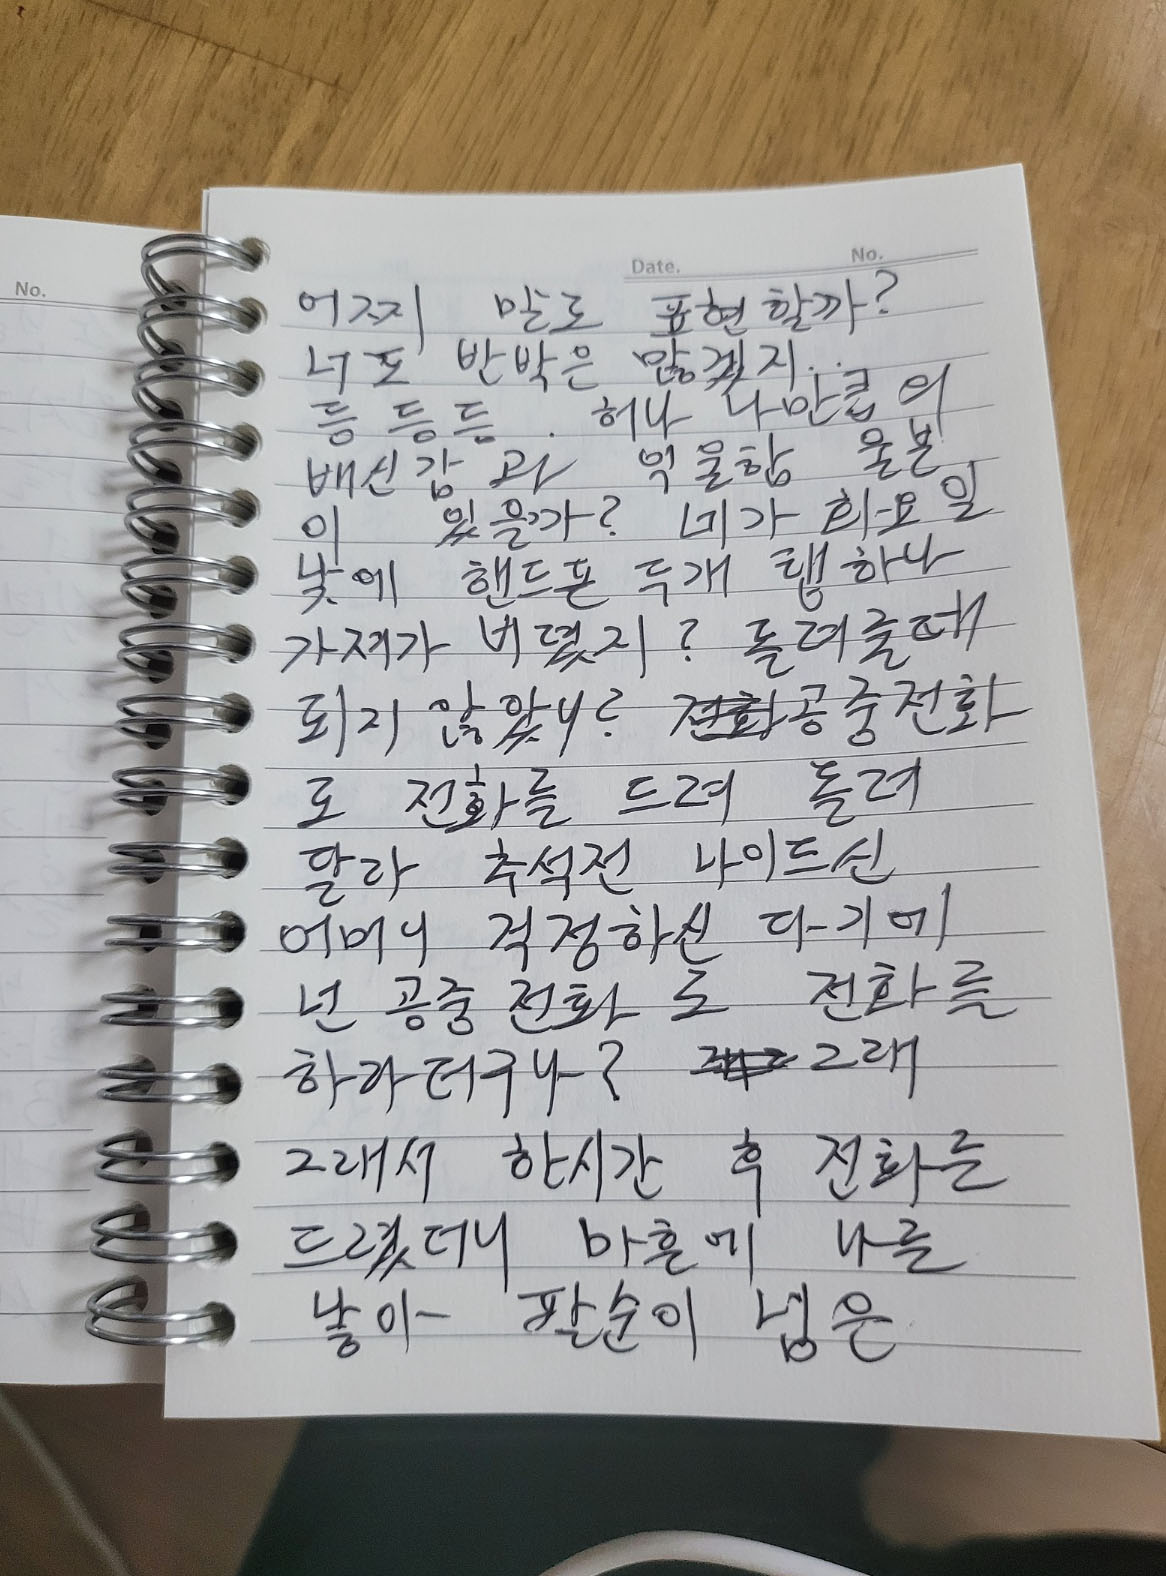 No.
Date. No.
어찌 말로 표현할까?
너도 반박은 않겠지...
등 등 등 . 허나 나만큼 의
배신감 과 억울함 울분
이 있을가? 네가 화요일
낮에 핸드폰 두개 탭 하나
가져가 버렸지? 돌려줄때
되지 않았니? 공중전화
로 전화를 드려 돌려
달라 추석전 나이드신
어머니 걱정하신 다기에
넌 공중 전화 로 전화를
하라더구나? 그래
그래서 한시간 후 전화를
드렸더니 마흔에 나를
낳아 팔순이 넘은